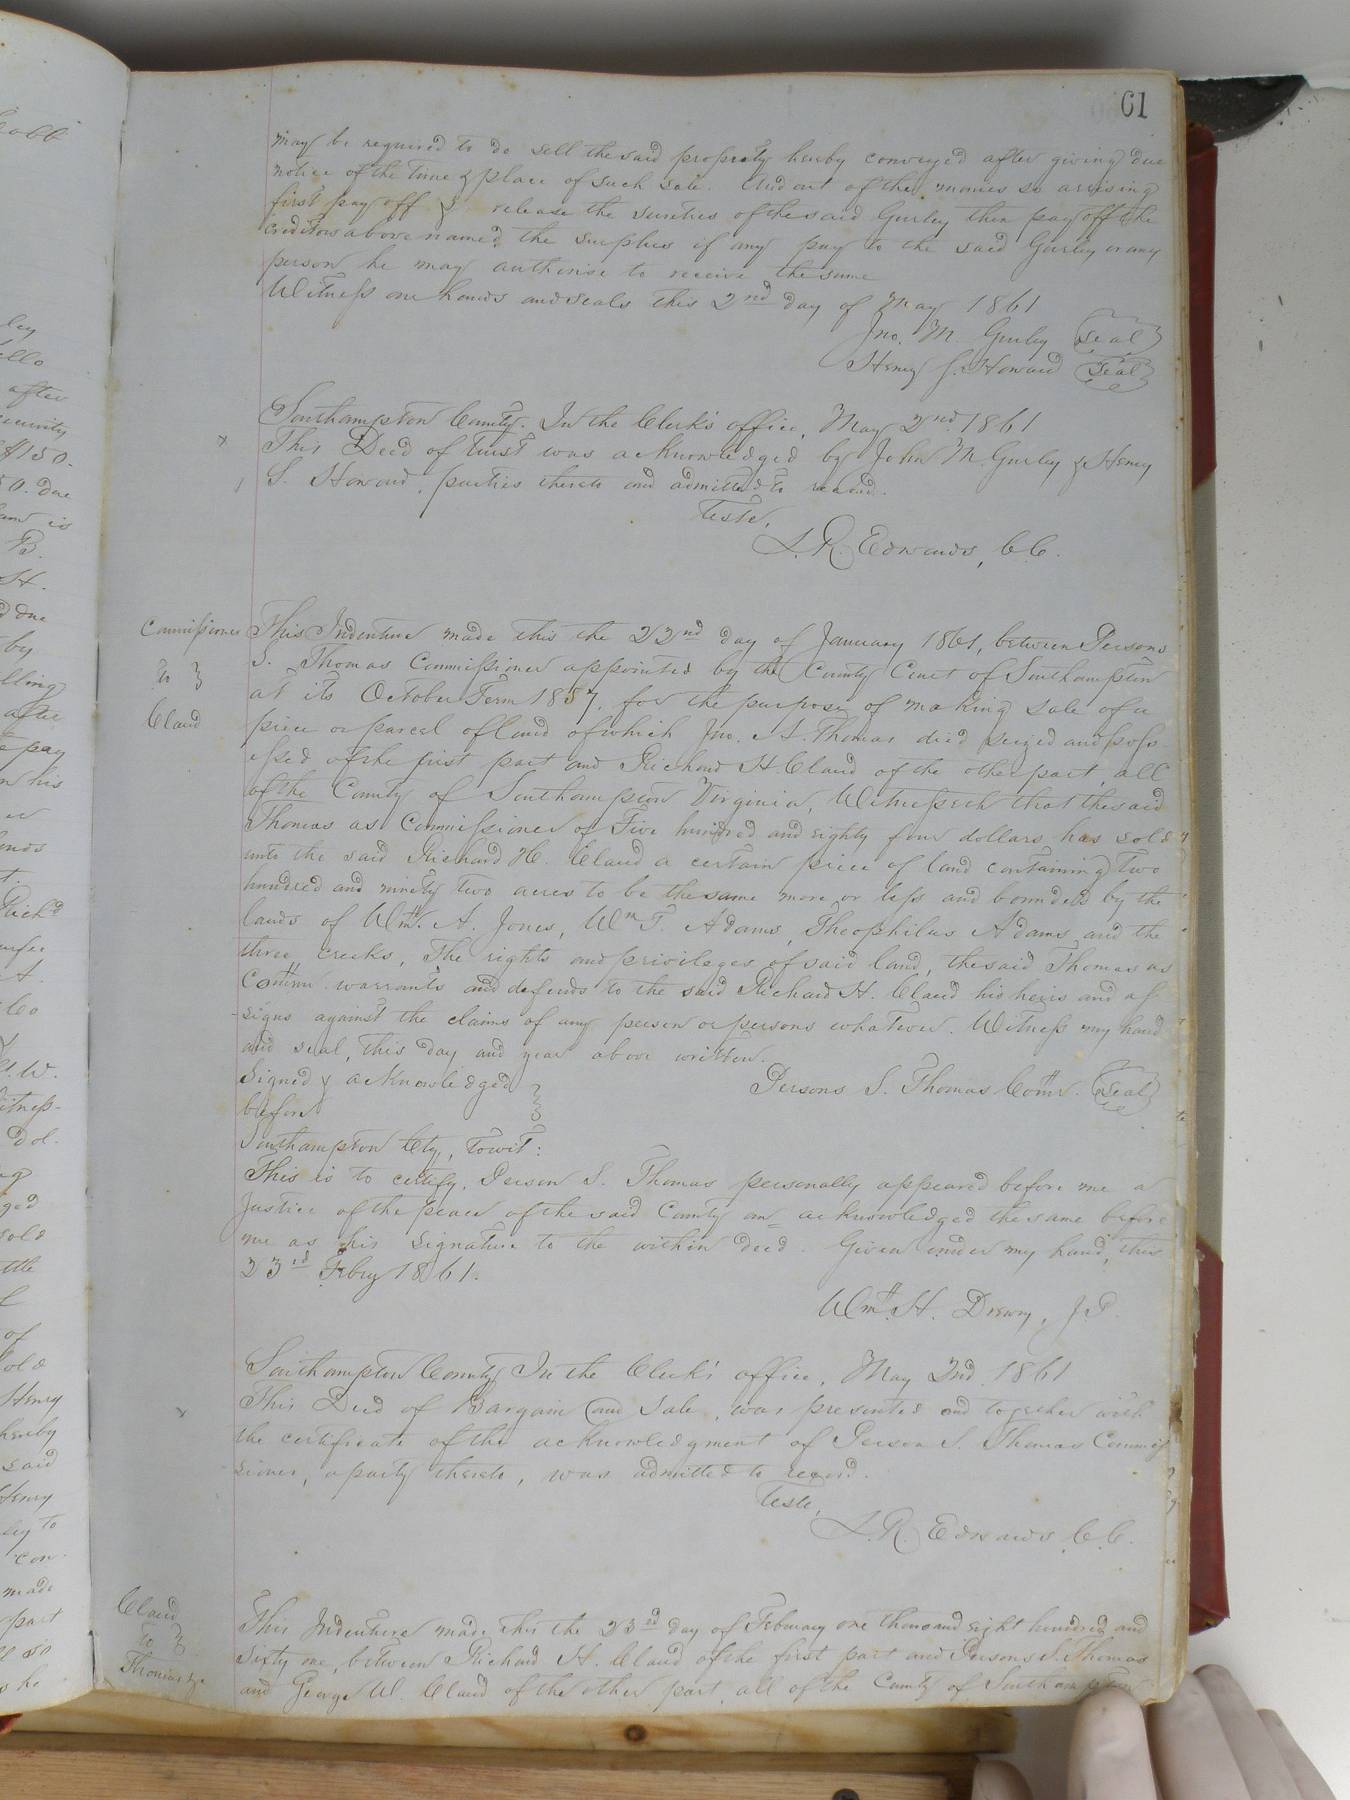 61
may be required to do sell the said property hereby conveyed after giving due
notice of the time & place of such sale. And out of the monies so arrising
first pay off & release the sureties of the said Gurley then pay off the
creditors above named the surplus if any pay to the said Gurley or any
person he may authorise to receive the same
Witness our hands and seals this 2nd day of May 1861
Jno. M. Gurley Seal
Henry S. Howard Seal
Southampton County. In the Clerk's office, May 2nd 1861
This Deed of trust was acknowledged by John M. Gurley & Henry
S. Howard, parties thereto and admitted to record.
Teste,
L. R. Edwards, C.C.
Commissioner
to
Claud
This Indenture made this the 23nd day of January 1861, between Persons
S. Thomas Commissioner appointed by the County Court of Southampton
at its October Term 1857, for the purpose of making sale of a
piece or parcel of land of which Jno. S. Thomas died seized and poss
essed of the first part and Richard H. Claud of the other part, all
of the County of Southampton Virginia, Witnesseth that the said
Thomas as Commissioner of Five hundred and eighty four dollars has sold
unto the said Richard H. Claud a certain piece of land containing Two
hundred and ninety two acres to be the same more or less and bounded by the
lands of Wm. A. Jones, Wm T. Adams, Theophilus Adams and the
three creeks, The rights and privileges of said land, the said Thomas as
Comm warrants and defends to the said Richard H. Claud his heirs and as
signs against the claims of any person or persons whatever. Witness my hand
and seal, this day and year above written.
Signed & acknowledged
before
Persons S. Thomas Comr. Seal
Southampton Cty, towit:
This is to certify, Person S. Thomas personally appeared before me a
Justice of the peace of the said County an acknowledged the same before
me as his signature to the within deed. Given under my hand, this
23rd Febry 1861.
Wm. H. Drewry, J.P.
Southampton County In the Clerk's office, May 2nd 1861
This Deed of Bargain and Sale, was presented and together with
the certificate of the acknowledgment of Person S. Thomas Commis
sioner, a party thereto, was admitted to record.
Teste,
L. R. Edwards C.C.
Claud
to
Thomas &c
This Indenture made this the 23rd day of February one thousand eight hundred and
Sixty one, between Richard H. Claud of the first part and Persons S. Thomas
and George W. Claud of the other part, all of the County of Southampton